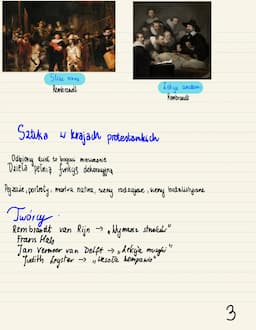 Straż nocna
Rembrandt
Lekcja anatomii
Rembrandt
Sztuka w krajach protestanckich
Odbijany kult to bogate
Dzieła pełnią funkcję dekoracyjną
Pejzaże, portrety, martwa natura, sceny rodzajowe, sceny
Twórcy
Rembrandt van Rijn → „Wymarsz strzelców”
Frans Hals
Jan Vermeer van Delft → „Lekcja muzyki”
Judith Leyster → „Wesoła kompania”
3